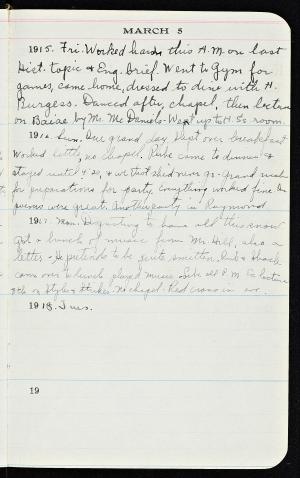 MARCH 5
1915. Fri. Worked hard this A.M. on last
Hist. topic & Eng. Brief. Went to Gym for
games, came home, dressed to dine with H.
Burgess. Danced after, chapel, then lecture
on by Mr. Mc Daniels. Went up to H.'s room.
1916. Sun. One grand day. Slept over breakfast
Worked little, no chapel. came to dinner &
stayed until 4 30, & we that grand rush
for preparations for party, everything worked fine
poems were great. Another party in Raymond
1917. Mon. Disgusting to have all this snow
Got a bunch of music from Mr. Hill, also a
letter - He pretends to be quite smitten. &
came over & lunch played music. P.M. to lecture
on Styles & no chapel - Red cross in eve.
1918. Tues.
19